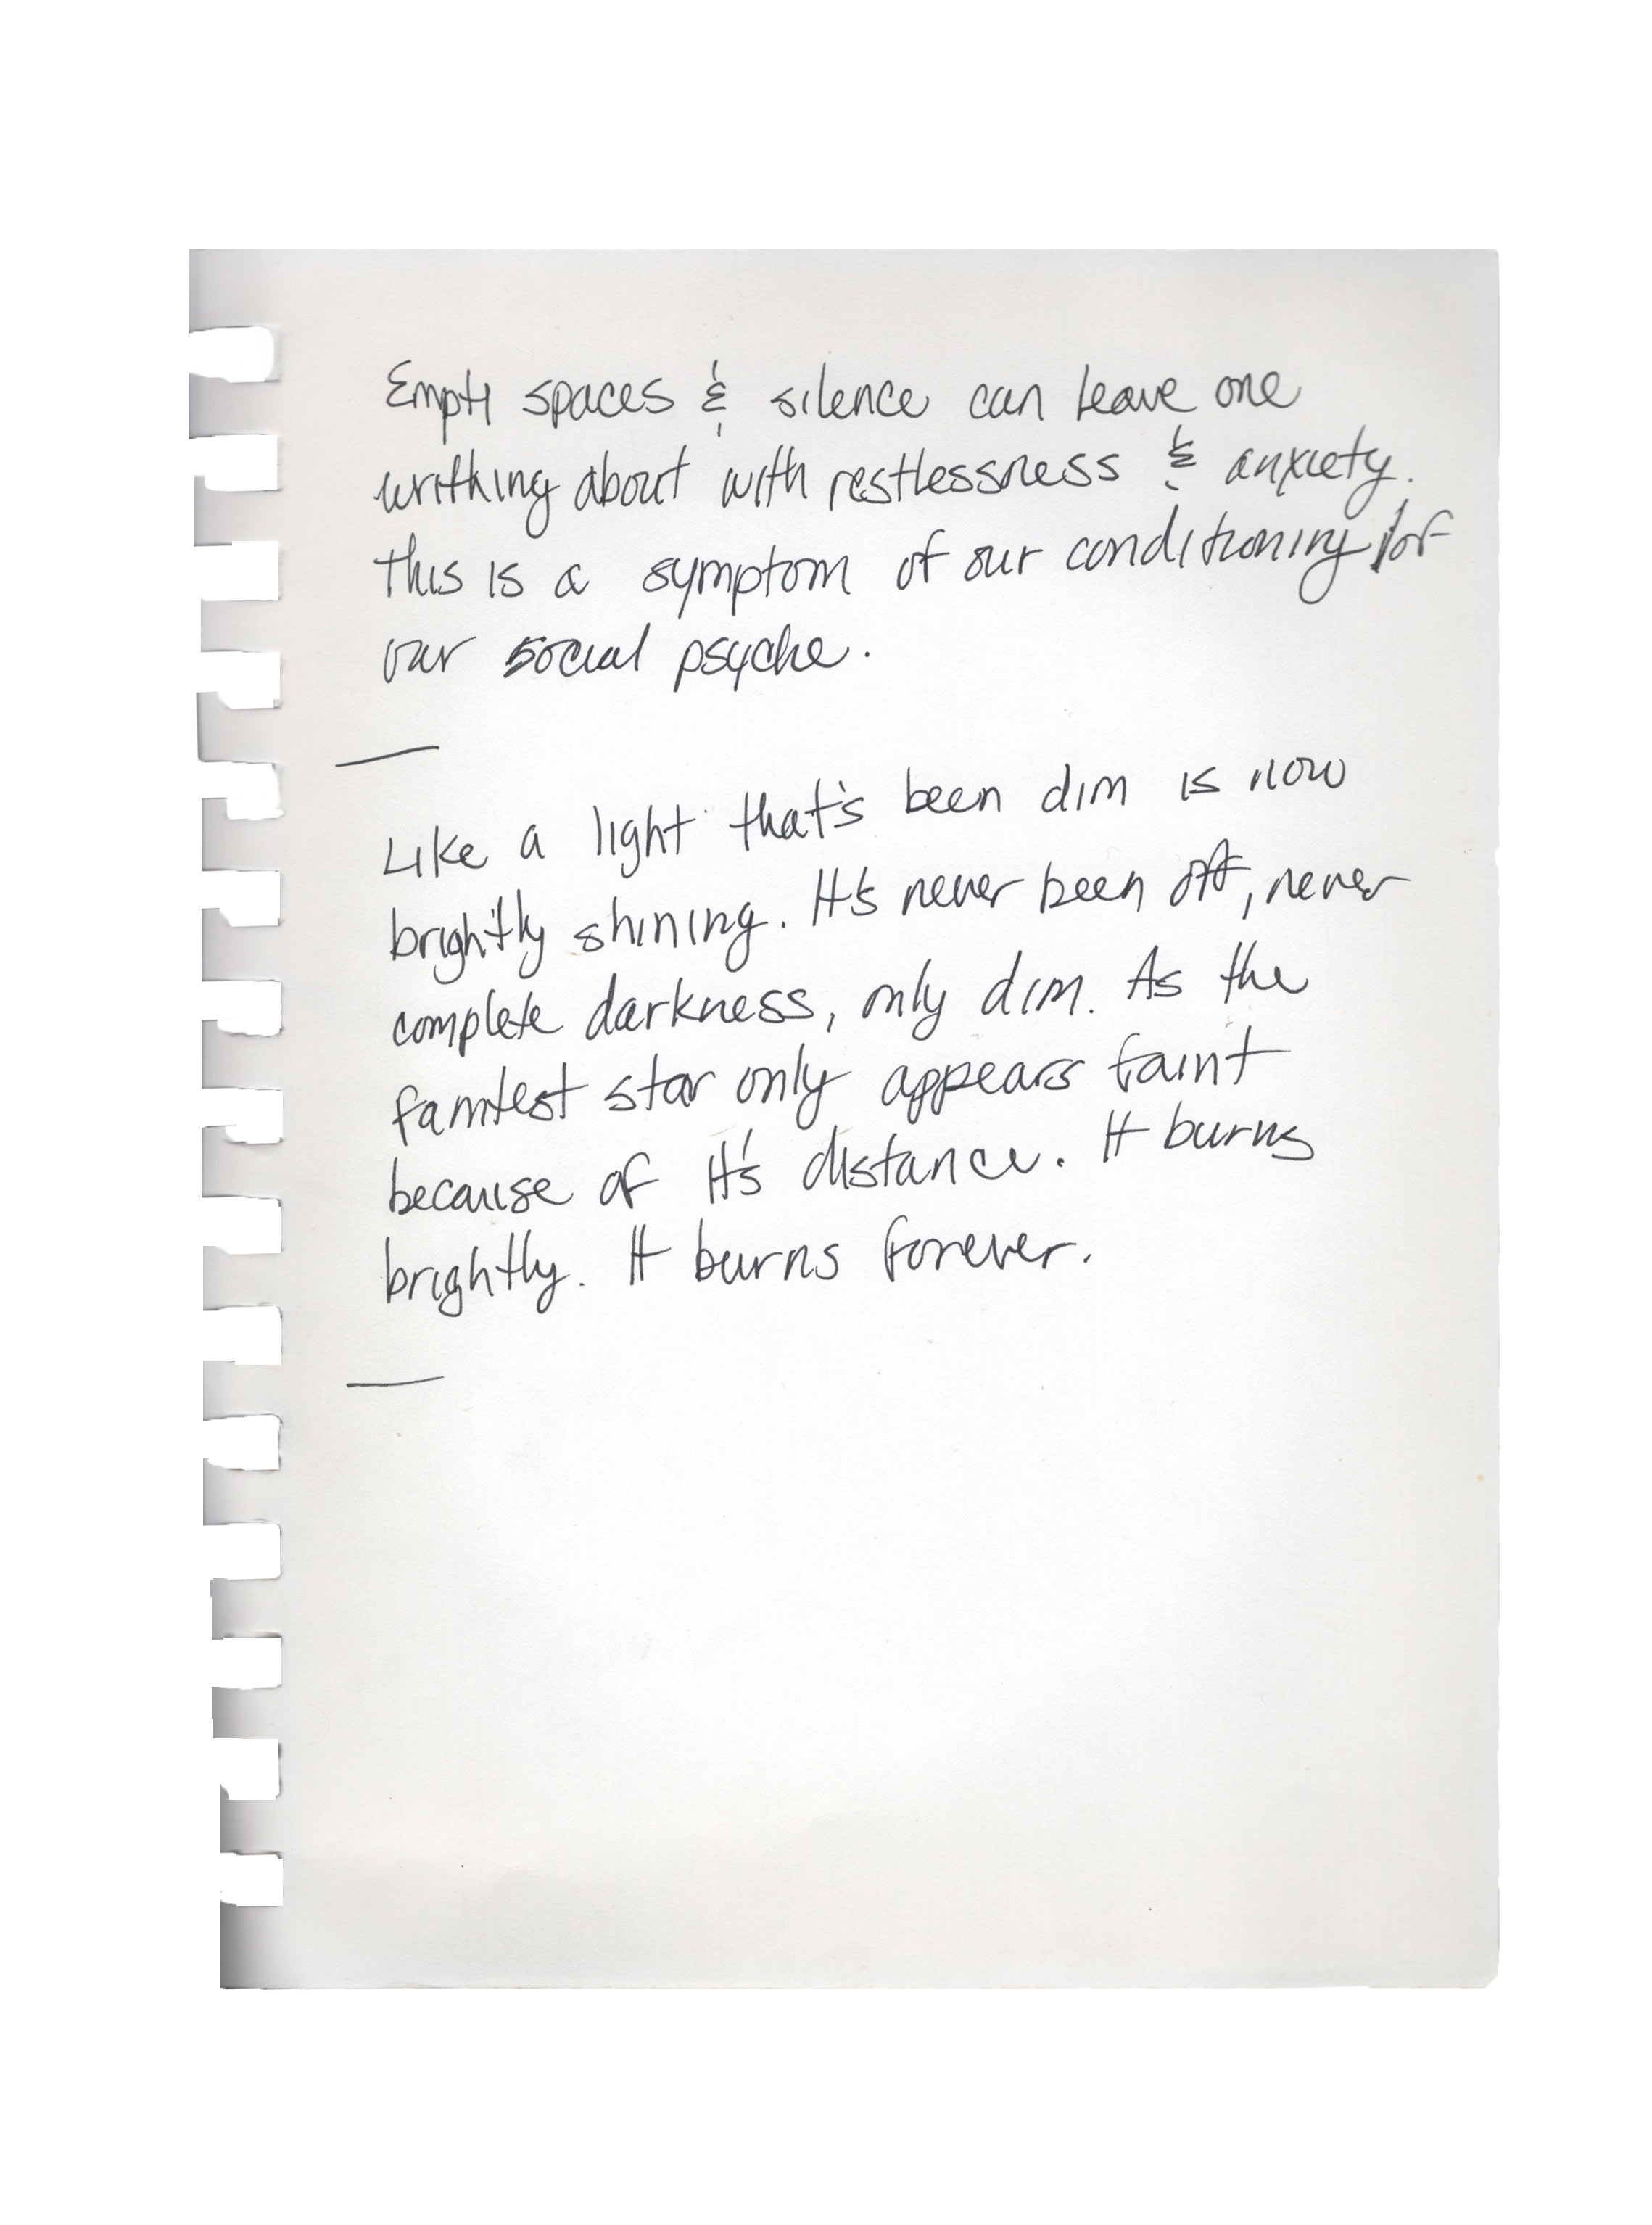 Empty spaces & silence can leave one
writhing about with restlessness & anxiety.
This is a symptom of our conditioning / of
our social psyche.
—
Like a light that's been dim is now
brightly shining. It's never been off, never
complete darkness, only dim. As the
faintest star only appears faint
because of it's distance. It burns
brightly. It burns forever.
—